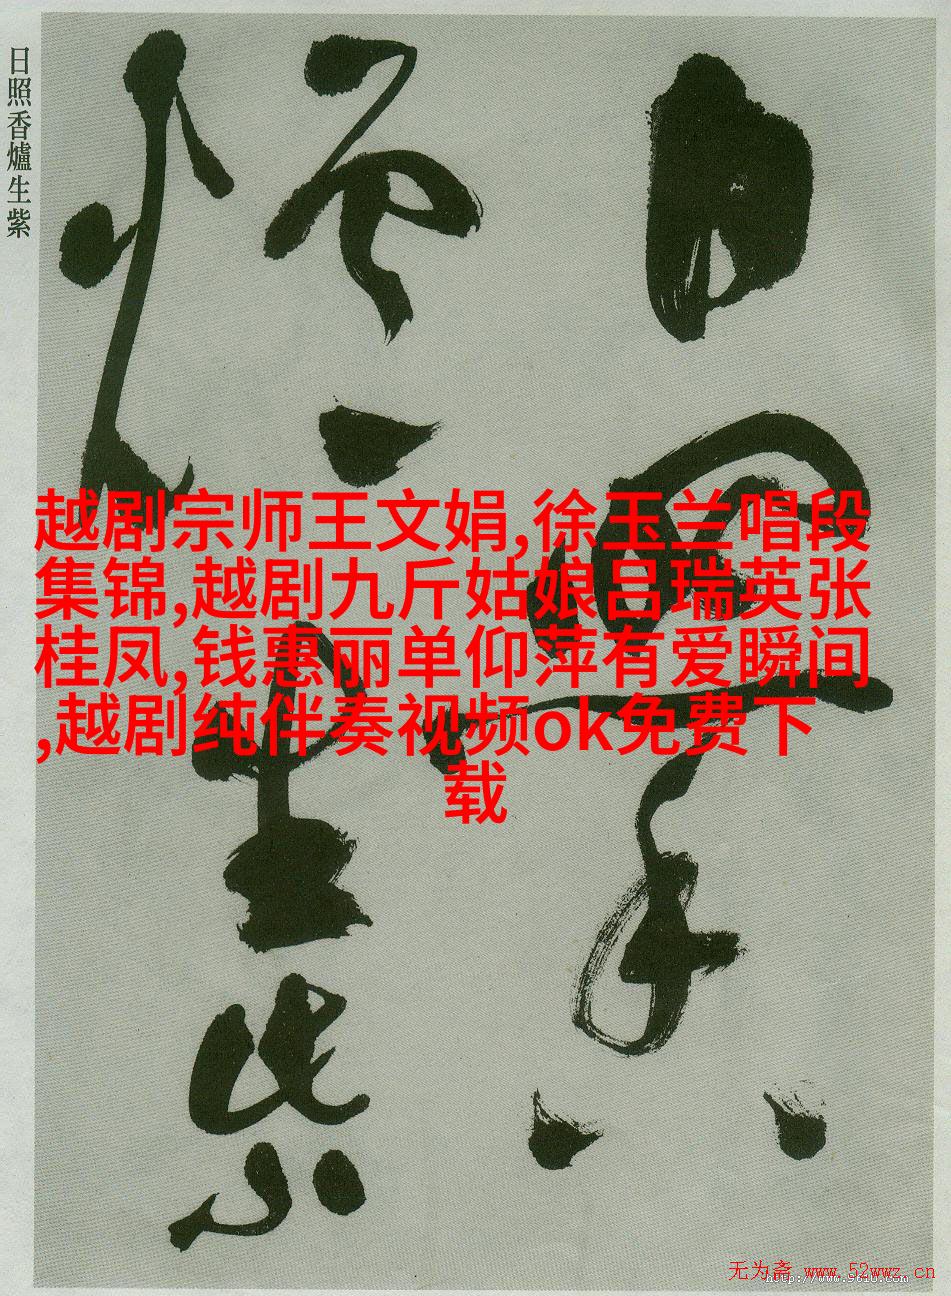 日照香爐生紫
日照香
爐生紫
越剧宗师王文娟,徐玉兰唱段
集锦,越剧九斤姑娘吕瑞英张
桂凤,钱惠丽单仰萍有爱瞬间
,越剧纯伴奏视频ok免费下
载
无为斋 www.52wwz.cn
http://www.9610.com